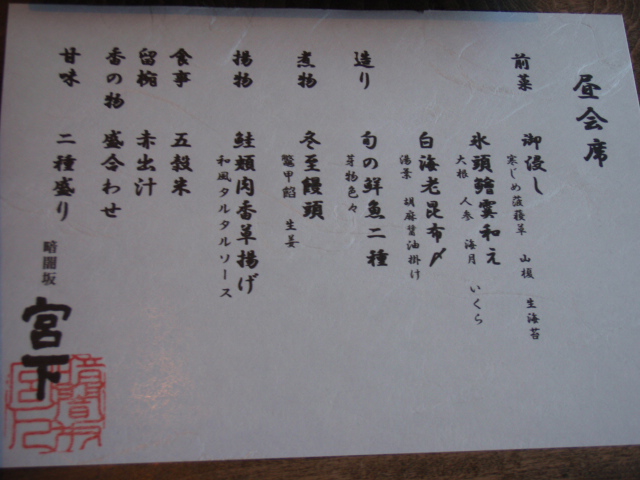 昼会席
前菜
御浸し
寒じめ菠薐草 山榎 生海苔
氷頭鱠霙和え
大根 人参 海月 いくら
白海老昆布〆
湯葉 胡麻醤油掛け
造り
旬の鮮魚二種
芽物色々
煮物
冬至饅頭
鼈甲餡 生姜
揚物
鮭頬肉香草揚げ
和風タルタルソース
食事
五穀米
留椀
赤出汁
香の物
盛合わせ
甘味
二種盛り
暗闇坂
宮下